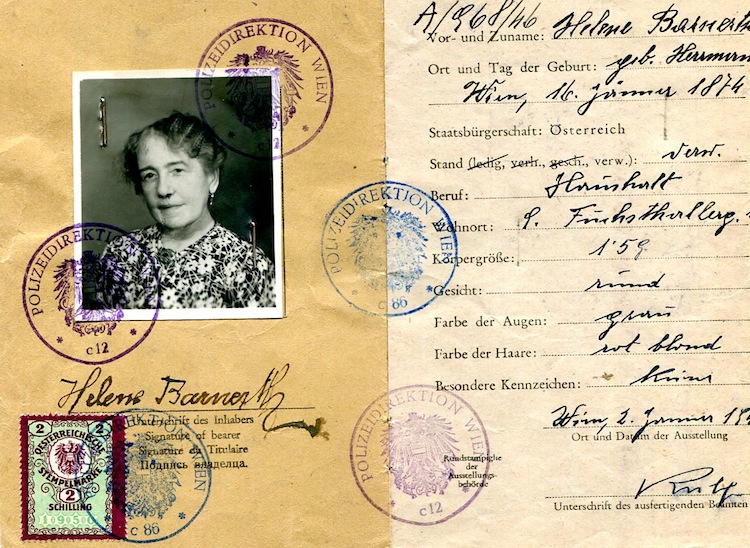 POLIZEIDIREKTION WIEN
POLIZEIDIREKTION WIEN
* c12 *
Helene Barnerth
Unterschrift des Inhabers
Signature of bearer
Signature du Titulaire
Подпись владельца.
2 2
ÖSTERREICHISCHE
STEMPELMARKE
2
SCHILLING
* c 86 *
POLIZEIDIREKTION WIEN
* c 86 *
A/968/46
Vor- und Zuname: Helene Barnerth
Ort und Tag der Geburt: geb. Herrmann
Wien, 16. Jänner 1874
Staatsbürgerschaft: Österreich
Stand (ledig, verh., gesch., verw.): verw.
Beruf: Haushalt
Wohnort: 9. Fuchsthallerg.
Körpergröße: 1'59
Gesicht: rund
Farbe der Augen: grau
Farbe der Haare: rot blond
Besondere Kennzeichen: Keine
Wien, 2. Jänner 19
Ort und Datum der Ausstellung
POLIZEIDIREKTION WIEN
* c12 *
Rundstampiglie
der
Ausstellungs-
behörde
Unterschrift des ausfertigenden Beamten